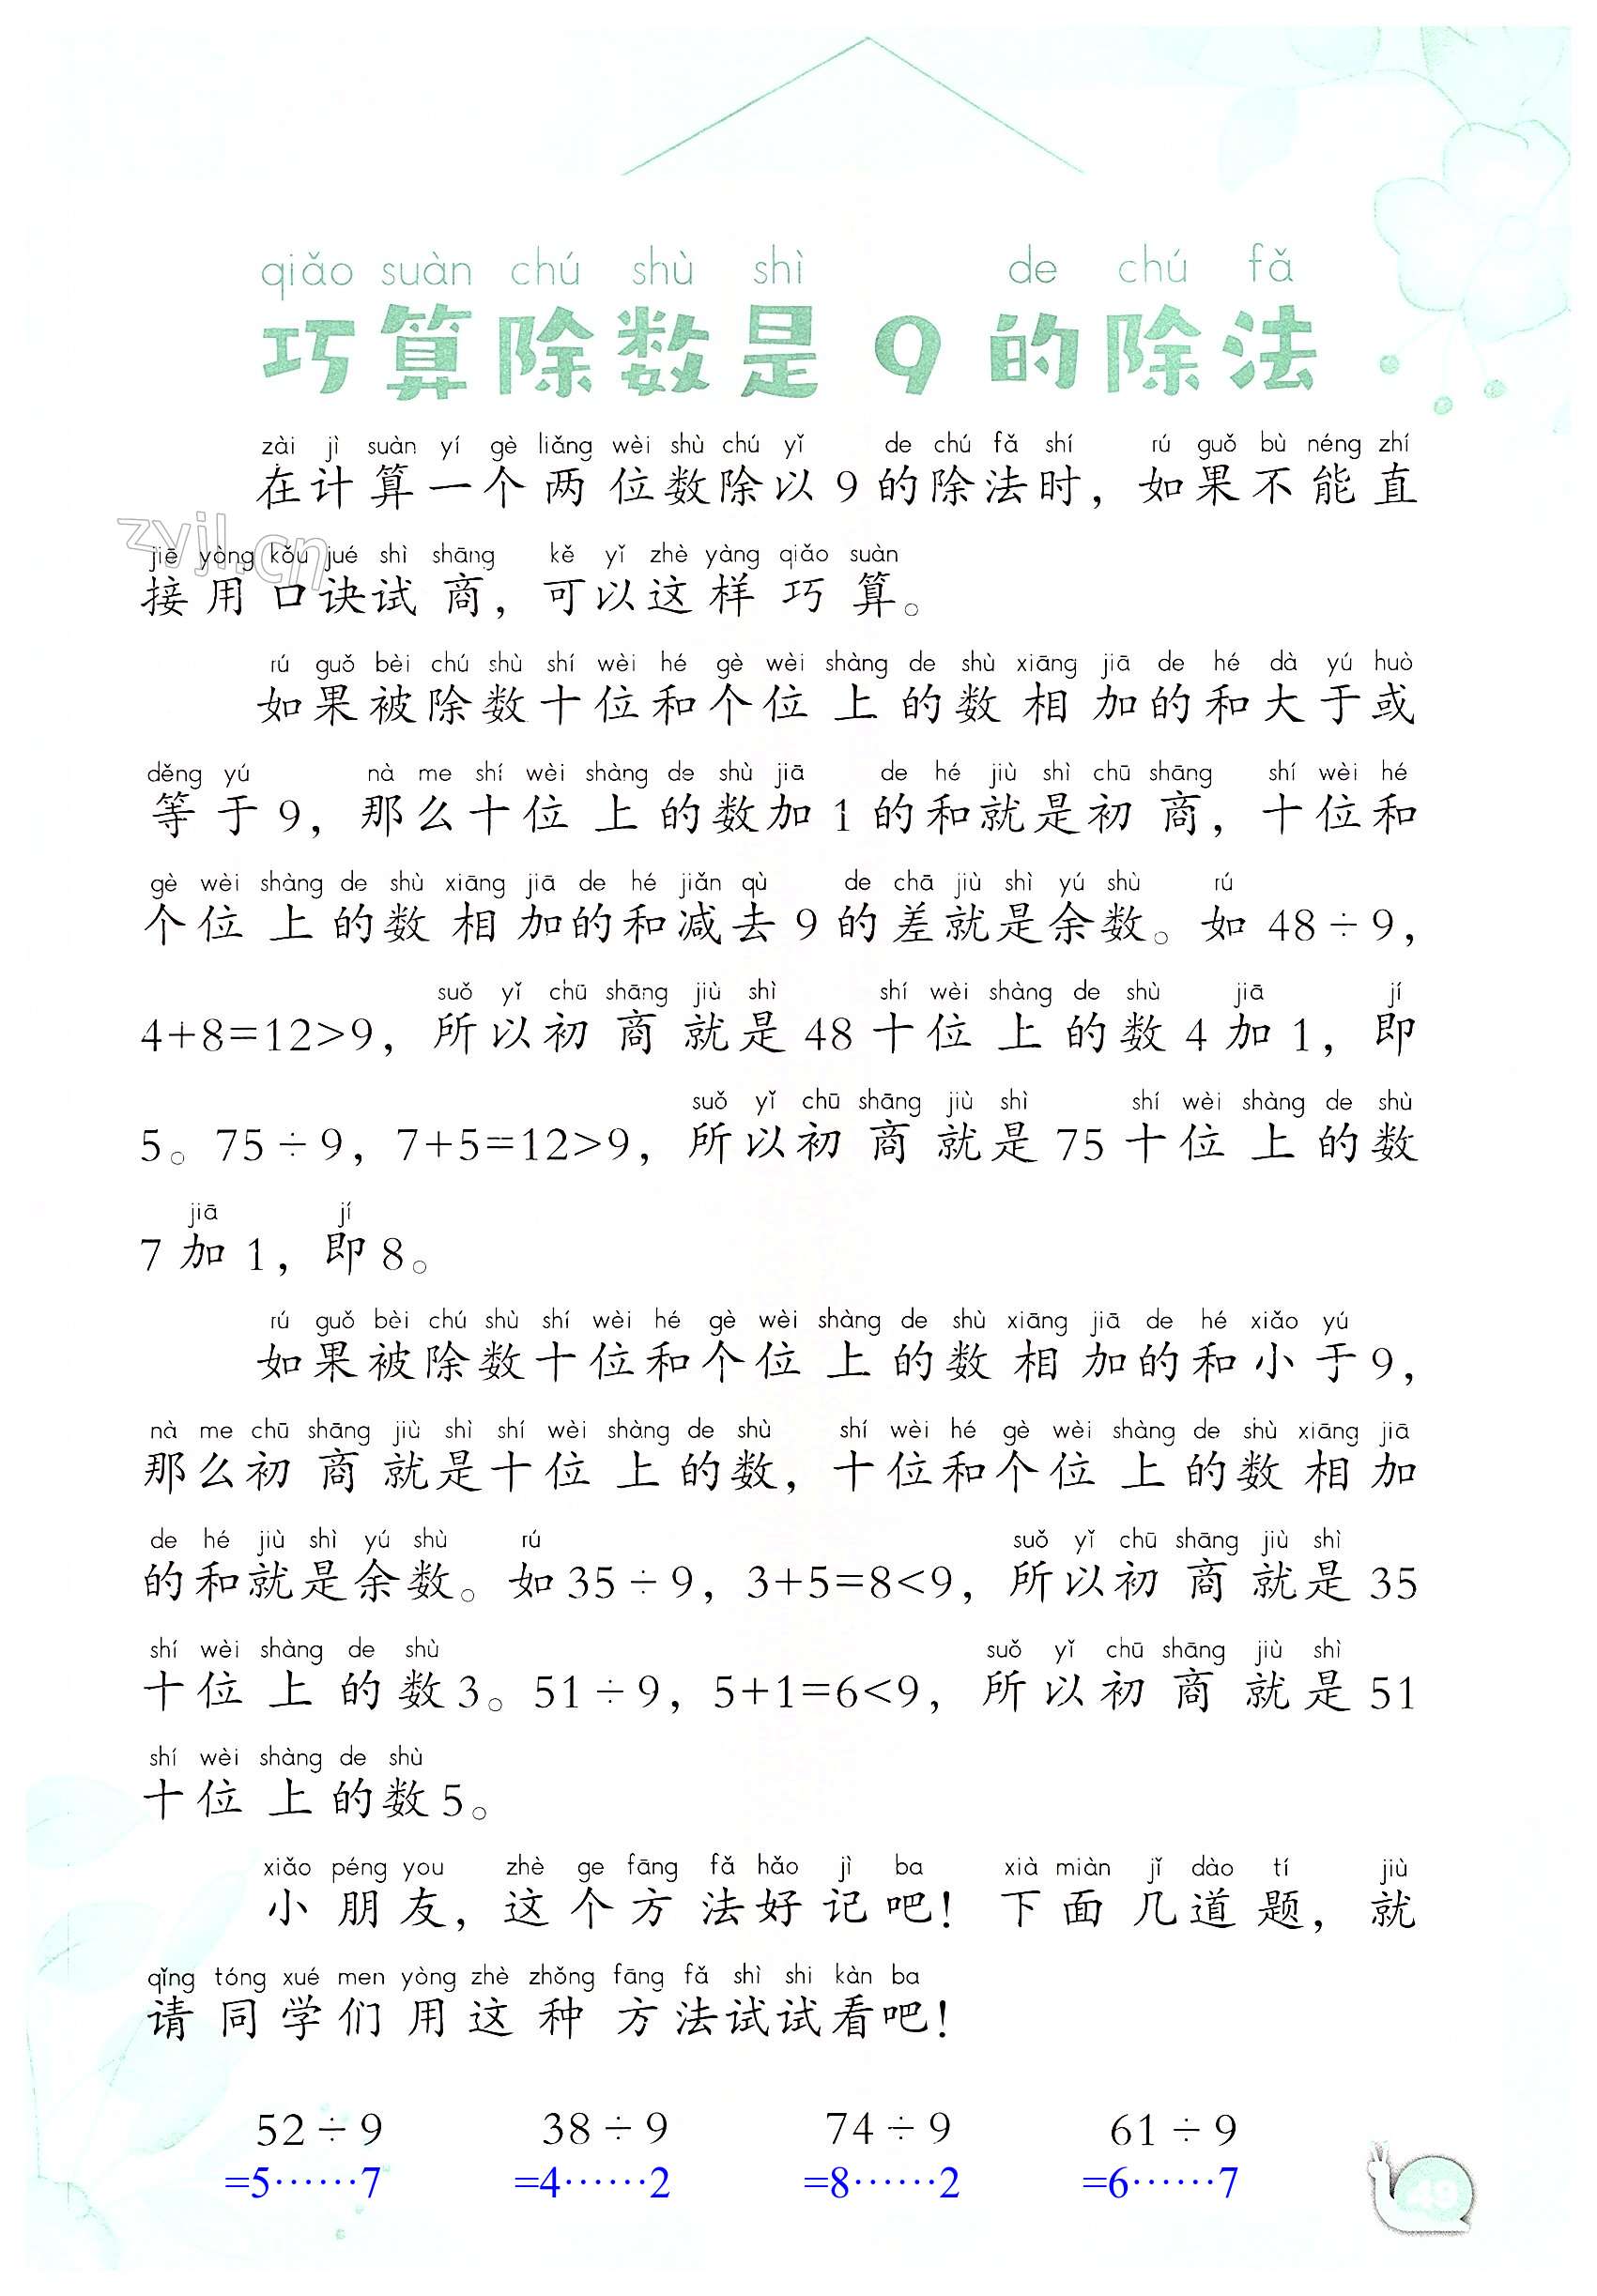 qiǎo suàn chú shù shì de chú fǎ
巧算除数是9的除法
zài jì suàn yí gè liǎng wèi shù chú yǐ de chú fǎ shí rú guǒ bù néng zhí
在计算一个两位数除以9的除法时，如果不能直
zyjl.cn
jiē yòng kǒu jué shì shāng kě yǐ zhè yàng qiǎo suàn
接用口诀试商，可以这样巧算。
rú guǒ bèi chú shù shí wèi hé gè wèi shàng de shù xiāng jiā de hé dà yú huò
如果被除数十位和个位上的数相加的和大于或
děng yú nà me shí wèi shàng de shù jiā de hé jiù shì chū shāng shí wèi hé
等于9，那么十位上的数加1的和就是初商，十位和
gè wèi shàng de shù xiāng jiā de hé jiǎn qù de chā jiù shì yú shù rú
个位上的数相加的和减去9的差就是余数。如48÷9，
suǒ yǐ chū shāng jiù shì shí wèi shàng de shù jiā jí
4+8=12>9，所以初商就是48十位上的数4加1，即
suǒ yǐ chū shāng jiù shì shí wèi shàng de shù
5。75÷9，7+5=12>9，所以初商就是75十位上的数
jiā jí
7加1，即8。
rú guǒ bèi chú shù shí wèi hé gè wèi shàng de shù xiāng jiā de hé xiǎo yú
如果被除数十位和个位上的数相加的和小于9，
nà me chū shāng jiù shì shí wèi shàng de shù shí wèi hé gè wèi shàng de shù xiāng jiā
那么初商就是十位上的数，十位和个位上的数相加
de hé jiù shì yú shù rú suǒ yǐ chū shāng jiù shì
的和就是余数。如35÷9，3+5=8<9，所以初商就是35
shí wèi shàng de shù suǒ yǐ chū shāng jiù shì
十位上的数3。51÷9，5+1=6<9，所以初商就是51
shí wèi shàng de shù
十位上的数5。
xiǎo péng you zhè ge fāng fǎ hǎo jì ba xià miàn jǐ dào tí jiù
小朋友，这个方法好记吧！下面几道题，就
qǐng tóng xué men yòng zhè zhǒng fāng fǎ shì shi kàn ba
请同学们用这种方法试试看吧！
52÷9 38÷9 74÷9 61÷9
=5……7 =4……2 =8……2 =6……7
49